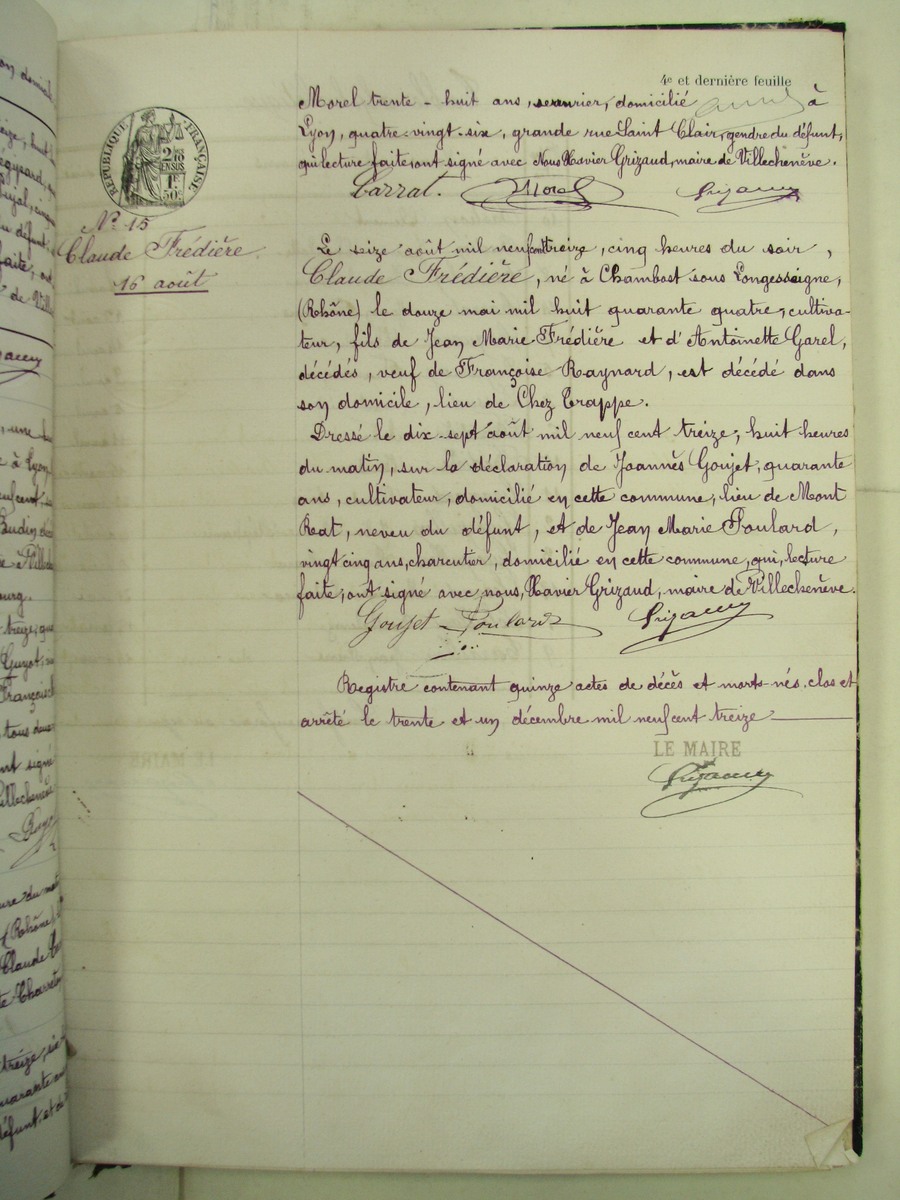 4e et dernière feuille
Morel trente-huit ans, serrurier, domicilié à
Lyon, quatre-vingt-six, grande rue Saint Clair, gendre du défunt,
qui lecture faite, ont signé avec Nous Xavier Grizaud, maire de Villechenève.
Carrat. Morel
RÉPUBLIQUE FRANÇAISE
2/10 EN SUS
1F 50c
No 15
Claude Frédière
16 août
Le seize août mil neuf cent treize, cinq heures du soir,
Claude Frédière, né à Chambost sous Longessaigne,
(Rhône) le douze mai mil huit quarante quatre, cultiva-
teur, fils de Jean Marie Frédière et d'Antoinette Garel,
décédés, veuf de Françoise Raynard, est décédé dans
son domicile, lieu de Chez Trappe.
Dressé le dix-sept août mil neuf cent treize, huit heures
du matin, sur la déclaration de Joannès Goujet, quarante
ans, cultivateur, domicilié en cette commune, lieu de Mont
Rat, neveu du défunt, et de Jean Marie Poulard,
vingt cinq ans, charcutier, domicilié en cette commune, qui, lecture
faite, ont signé avec nous, Xavier Grizaud, maire de Villechenève.
Goujet Poulard
Registre contenant quinze actes de décès et morts-nés, clos et
arrêté le trente et un décembre mil neuf cent treize
LE MAIRE